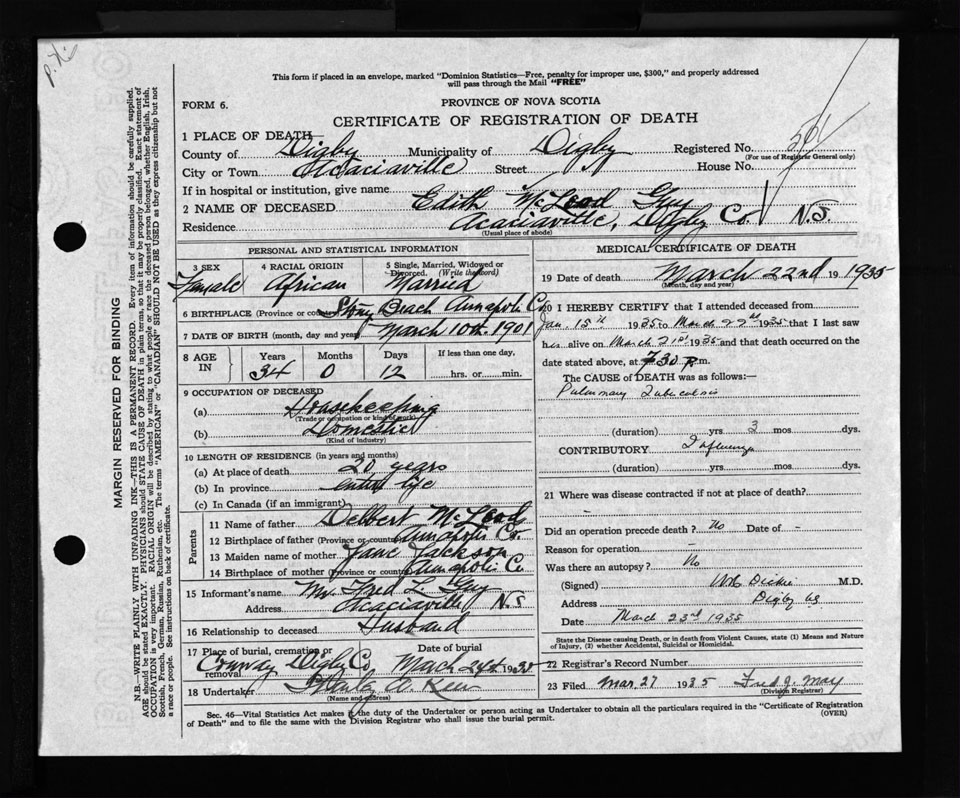 This form if placed in an envelope, marked "Dominion Statistics—Free, penalty for improper use, $300," and properly addressed
will pass through the Mail "FREE"
FORM 6.
PROVINCE OF NOVA SCOTIA
CERTIFICATE OF REGISTRATION OF DEATH
1 PLACE OF DEATH—
County of Digby Municipality of Digby Registered No.
(For use of Registrar General only)
City or Town Acaciaville Street House No.
If in hospital or institution, give name
2 NAME OF DECEASED Edith McLeod Guy
Residence Acaciaville, Digby Co. N.S.
(Usual place of abode)
PERSONAL AND STATISTICAL INFORMATION
3 SEX 4 RACIAL ORIGIN 5 Single, Married, Widowed or
Divorced. (Write the word)
Female African Married
6 BIRTHPLACE (Province or country) Stony Beach Annapolis Co
7 DATE OF BIRTH (month, day and year) March 10th. 1901
8 AGE IN Years Months Days If less than one day,
34 0 12 hrs. or min.
9 OCCUPATION OF DECEASED
(a) Housekeeping
(Trade or occupation or kind of work)
(b) Domestic
(Kind of industry)
10 LENGTH OF RESIDENCE (in years and months)
(a) At place of death 20 years
(b) In province entire life
(c) In Canada (if an immigrant)
Parents
11 Name of father Delbert McLeod
12 Birthplace of father (Province or country) Annapolis Co.
13 Maiden name of mother Jane Jackson
14 Birthplace of mother (Province or country) Annapolis Co
15 Informant's name Mr Fred L. Guy
Address Acaciaville N.S
16 Relationship to deceased Husband
17 Place of burial, cremation or removal Date of burial
Conway Digby Co. March 24th 1935
18 Undertaker
(Name and address)
MEDICAL CERTIFICATE OF DEATH
19 Date of death March 22nd 19 1935
(Month, day and year)
20 I HEREBY CERTIFY that I attended deceased from
Jan. 15th 1935 to March 22nd 1935 that I last saw
her alive on March 21st 1935 and that death occurred on the
date stated above, at 7.30 P.m.
The CAUSE of DEATH was as follows:—
Pulmonary Tuberculosis
(duration) yrs 3 mos. dys.
CONTRIBUTORY Influenza
(duration) yrs. mos. dys.
21 Where was disease contracted if not at place of death?
Did an operation precede death? No Date of -
Reason for operation -
Was there an autopsy? No
(Signed) M.D.
Address Digby NS
Date March 23rd 1935
State the Disease causing Death, or in death from Violent Causes, state (1) Means and Nature
of Injury, (2) whether Accidental, Suicidal or Homicidal.
22 Registrar's Record Number
23 Filed Mar. 27 1935 Fred J. May
(Division Registrar)
Sec. 46—Vital Statistics Act makes it the duty of the Undertaker or person acting as Undertaker to obtain all the particulars required in the "Certificate of Registration
of Death" and to file the same with the Division Registrar who shall issue the burial permit.
(OVER)
MARGIN RESERVED FOR BINDING
N.B.—WRITE PLAINLY WITH UNFADING INK—THIS IS A PERMANENT RECORD. Every item of information should be carefully supplied.
AGE should be stated EXACTLY. PHYSICIANS should STATE CAUSE OF DEATH in plain terms, so that it may be properly classified. Exact statement of
OCCUPATION is very important. RACIAL ORIGIN will be described by stating to what people or race the deceased person belonged, whether English, Irish,
Scottish, French, German, Russian, Ruthenian, etc. The terms "AMERICAN" or "CANADIAN" SHOULD NOT BE USED as they express citizenship but not
a race or people. See instructions on back of certificate.